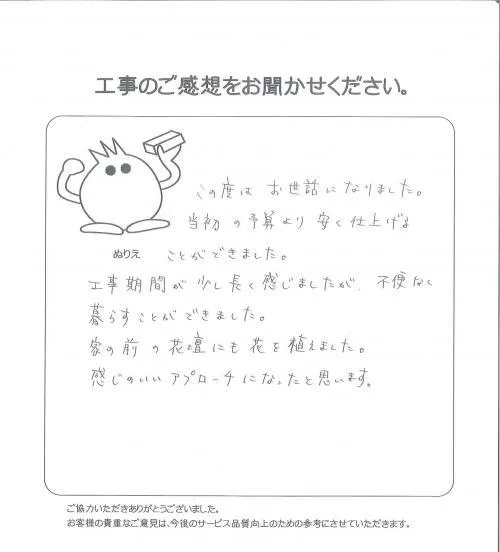 工事のご感想をお聞かせください。
この度は お世話になりました。
当初の予算より安く仕上げる
ぬりえ
ことができました。
工事期間が少し長く感じましたが、不便なく
暮らすことができました。
家の前の花壇にも花を植えました。
感じのいいアプローチになったと思います。
ご協力いただきありがとうございました。
お客様の貴重なご意見は、今後のサービス品質向上のための参考にさせていただきます。